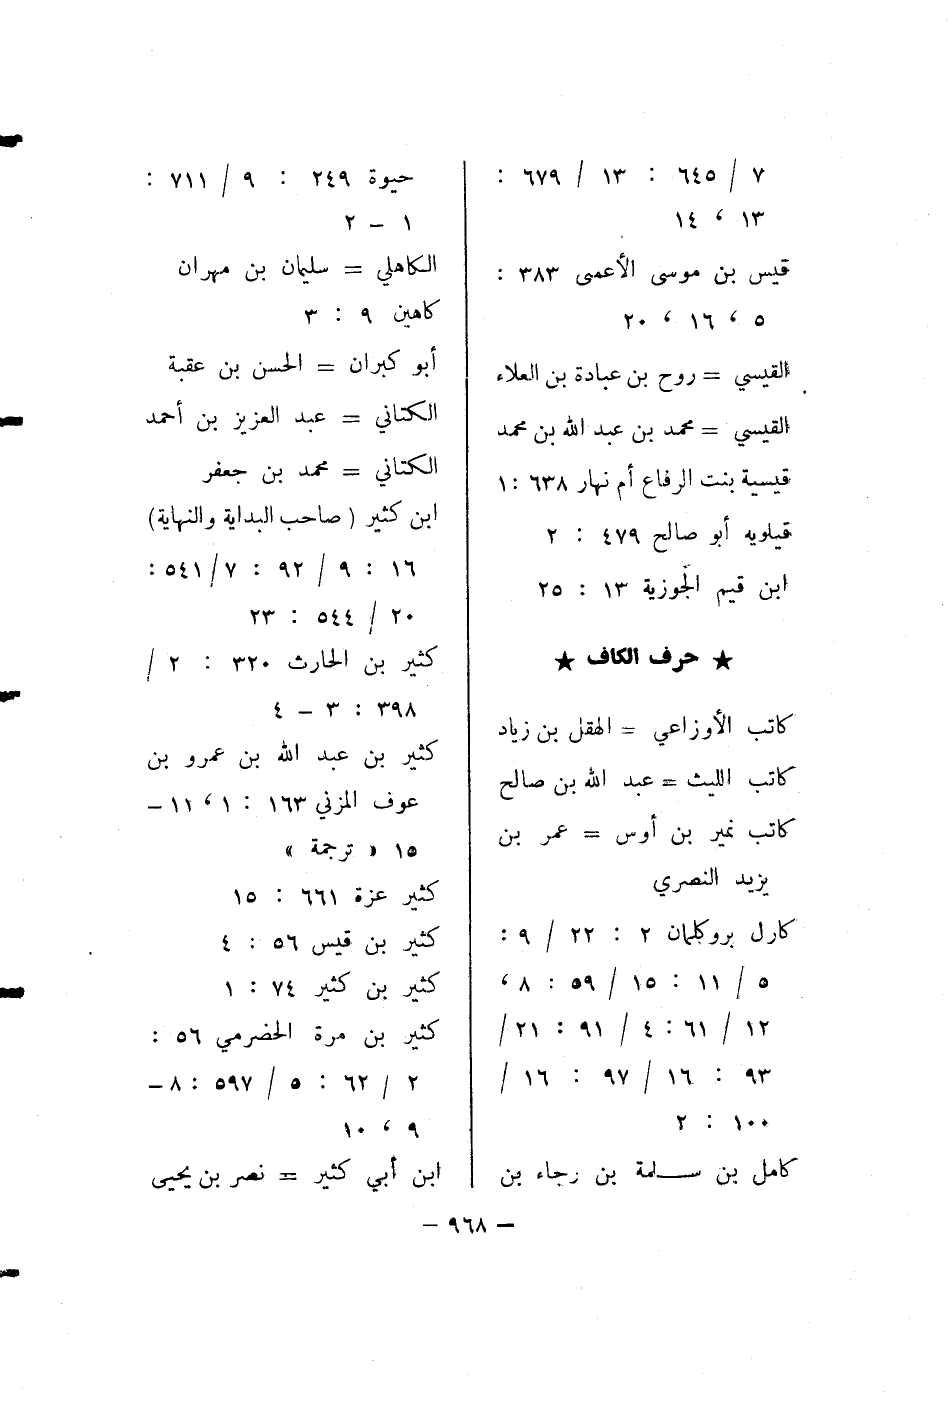 ٧ / ٦٤٥ : ١٣ / ٦٧٩ :
١٣ ، ١٤
قيس بن موسى الأعمى ٣٨٣ :
٥ ، ١٦ ، ٢٠
القيسي = روح بن عبادة بن العلاء
القيسي = محمد بن عبد الله بن محمد
قيسية بنت الرفاع أم نهار ٦٣٨ : ١
قيلويه أبو صالح ٤٧٩ : ٢
ابن قيم الجوزية ١٣ : ٢٥
★ حرف الكاف ★
كاتب الأوزاعي = الهقل بن زياد
كاتب الليث = عبد الله بن صالح
كاتب نمير بن أوس = عمر بن
يزيد النصري
كارل بروكلمان ٢ : ٢٢ / ٩ :
٥ / ١١ : ١٥ / ٥٩ : ٨ ،
١٢ / ٦١ : ٤ / ٩١ : ٢١ /
٩٣ : ١٦ / ٩٧ : ١٦ /
١٠٠ : ٢
كامل بن سلمة بن رجاء بن
حيوة ٢٤٩ : ٩ / ٧١١ :
١ - ٢
الكاهلي = سليمان بن مهران
كاهين ٩ : ٣
أبو كبران = الحسن بن عقبة
الكتاني = عبد العزيز بن أحمد
الكتاني = محمد بن جعفر
ابن كثير ( صاحب البداية والنهاية)
١٦ : ٩ / ٩٢ : ٧ / ٥٤١ :
٢٠ / ٥٤٤ : ٢٣
كثير بن الحارث ٣٢٠ : ٢ /
٣٩٨ : ٣ - ٤
كثير بن عبد الله بن عمرو بن
عوف المزني ١٦٣ : ١ ، ١١ -
١٥ « ترجمة »
كثير عزة ٦٦١ : ١٥
كثير بن قيس ٥٦ : ٤
كثير بن كثير ٧٤ : ١
كثير بن مرة الحضرمي ٥٦ :
٢ / ٦٢ : ٥ / ٥٩٧ : ٨ -
٩ ، ١٠
ابن أبي كثير = نصر بن يحيى
- ٩٦٨ -